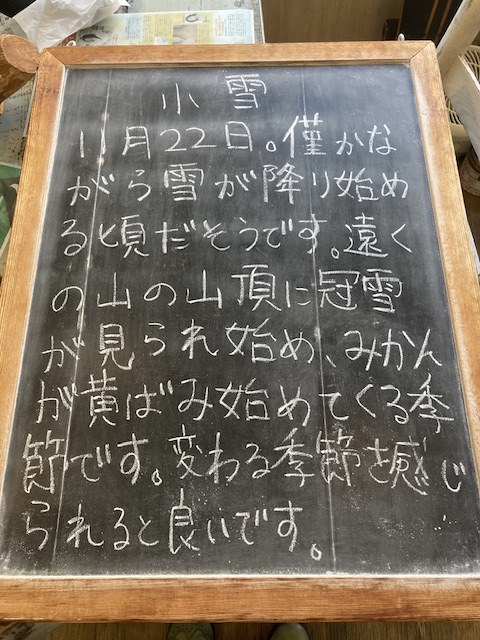 小雪
11月22日。僅かな
がら雪が降り始め
る頃だそうです。遠く
の山の山頂に冠雪
が見られ始め、みかん
が黄ばみ始めてくる季
節です。変わる季節を感じ
られると良いです。